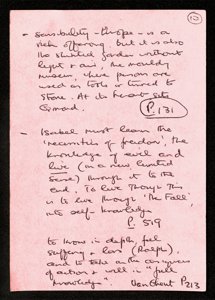 10
- Sensibility – Europe – is a
rich offering but it is also
the stunted garden without
light & air, the worldly
museum, where persons are
used as tools or turned to
stone. At its heart sits
Osmond.
P. 131
- Isabel must learn the
'necessities of freedom', the
knowledge of evil and
live (in a new limited
sense) through it to the
end. To live through this
is to live through 'the Fall',
into self-knowledge
P. 519
to know in depth, feel
suffering & love (Ralph),
and to take on the consequences
of action & will in "full
knowledge".
Van Ghent P 213